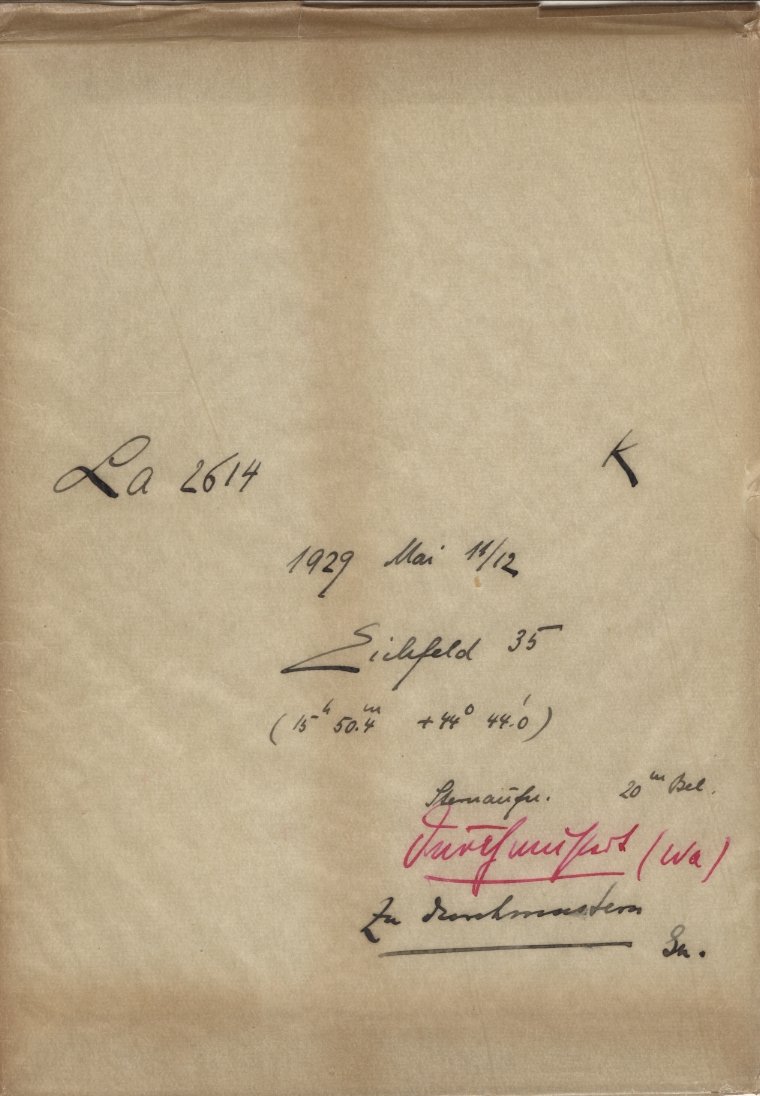 La 2614 K
1929 Mai 11/12
Eichfeld 35
(15ʰ 50.4ᵐ +44⁰ 44.0')
Sternaufn. 20ᵐ Bel.
Durchmustert (Wa)
Zu durchmustern